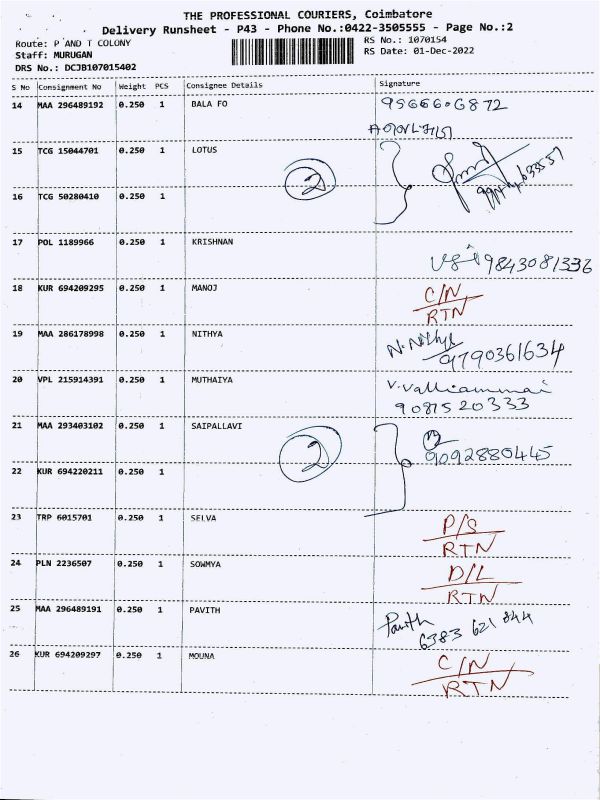 THE PROFESSIONAL COURIERS, Coimbatore
Delivery Runsheet - P43 - Phone No.:0422-3505555 - Page No.:2
Route: P AND T COLONY
RS No.: 1070154
Staff: MURUGAN
RS Date: 01-Dec-2022
DRS No.: DCJB107015402
S No Consignment No Weight PCS Consignee Details Signature
14 MAA 296489192 0.250 1 BALA FO 9566606872
15 TCG 15044701 0.250 1 LOTUS
2
16 TCG 50280410 0.250 1
17 POL 1189966 0.250 1 KRISHNAN
9843081336
18 KUR 694209295 0.250 1 MANOJ C/N
RTN
19 MAA 286178998 0.250 1 NITHYA N. Nithya
9790361634
20 VPL 215914391 0.250 1 MUTHAIYA V. Valliammai
9087520333
21 MAA 293403102 0.250 1 SAIPALLAVI
2 9092880445
22 KUR 694220211 0.250 1
23 TRP 6015701 0.250 1 SELVA P/S
RTN
24 PLN 2236507 0.250 1 SOWMYA D/L
RTN
25 MAA 296489191 0.250 1 PAVITH Pavith
6383 621 844
26 KUR 694209297 0.250 1 MOUNA C/N
RTN